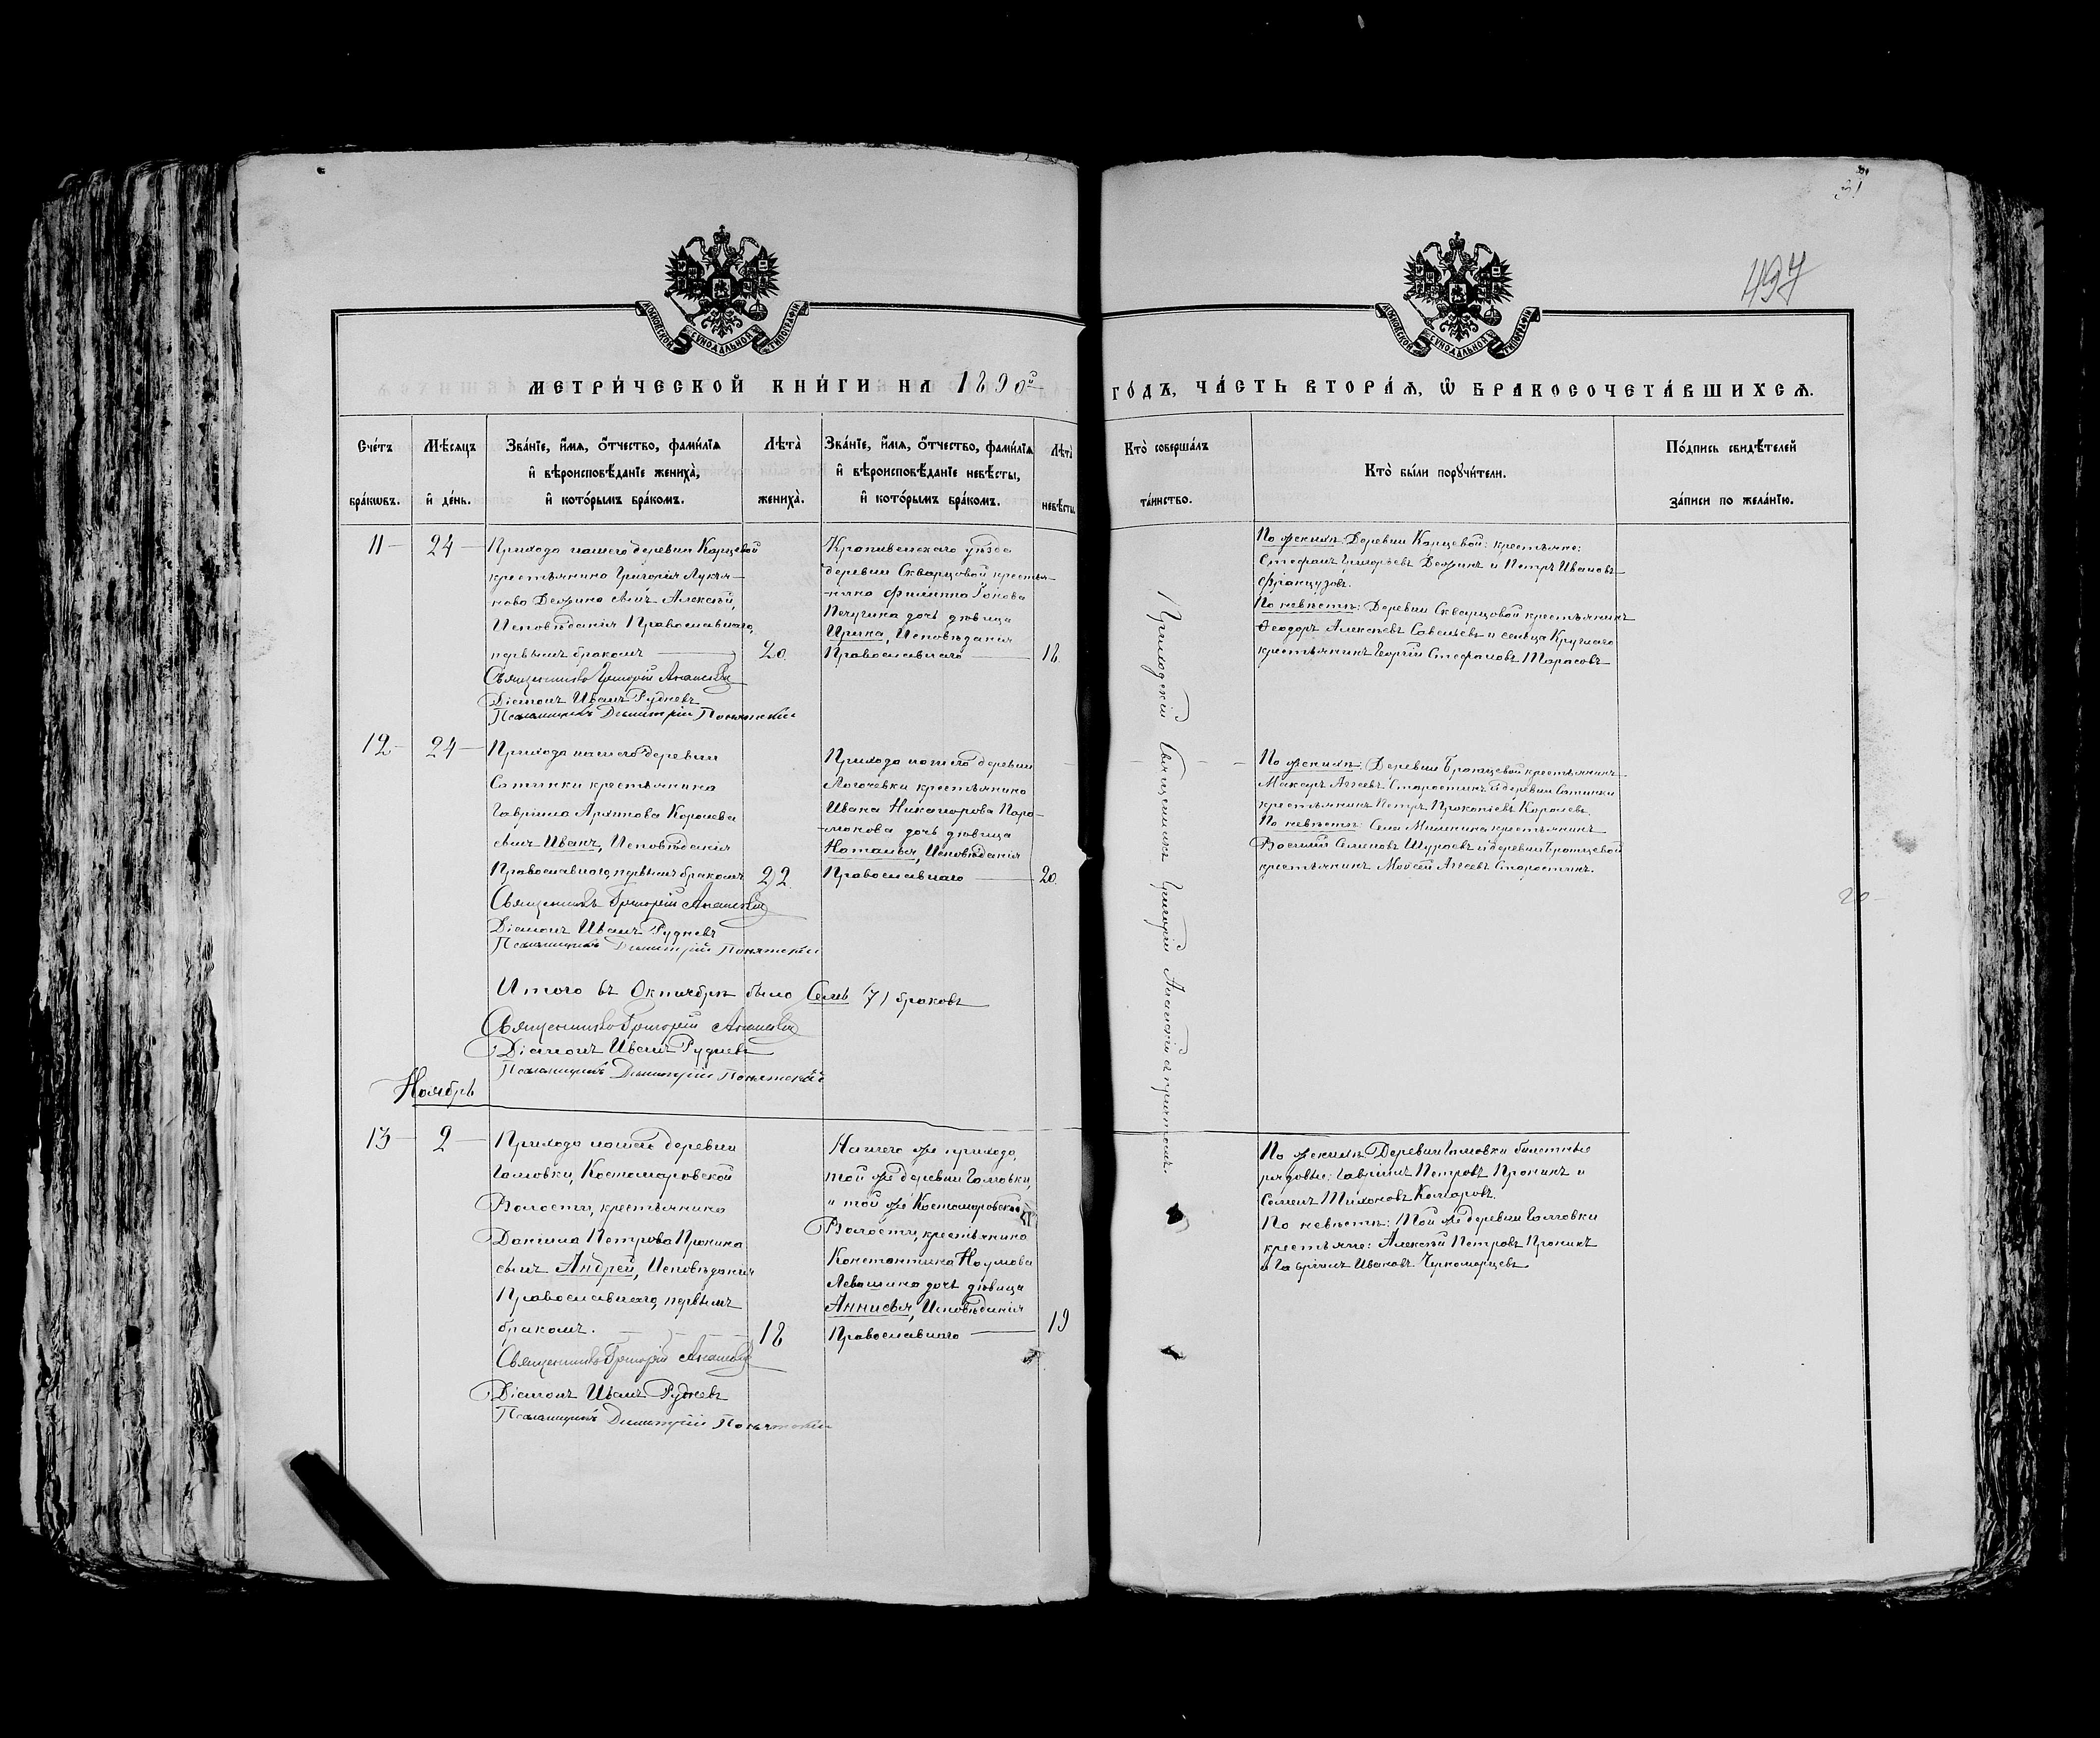 31
497
МОСКОВСКОЙ СѴНОДАЛЬНОЙ ТИПОГРАФІИ
МОСКОВСКОЙ СѴНОДАЛЬНОЙ ТИПОГРАФІИ
МЕТРИ́ЧЕСКОЙ КНИ́ГИ НА 1890й
ГО́ДЪ, ЧА́СТЬ ВТОРА́Ѧ, Ѡ҆ БРАКОСОЧЕТА́ВШИХСѦ.
Сче́тъ бра́кωвъ.
Мѣ́сяцъ и҆ де́нь.
Зва́нїе, и҆́мѧ, ѻ҆́тчество, фами́лїѧ
и҆ вѣроисповѣ́данїе жениха̀,
и҆ кото́рымъ бра́комъ.
Лѣта̀ жениха̀.
Зва́нїе, и҆́мѧ, ѻ҆́тчество, фами́лїѧ
и҆ вѣроисповѣ́данїе невѣ́сты,
и҆ кото́рымъ бра́комъ.
Лѣта̀ невѣ́сты.
Кто̀ соверша́лъ
та́инство.
Кто̀ бы́ли порꙋчи́тели.
По́дпись свидѣ́телей
за́писи по жела́нїю.
11 — 24 —
Прихода нашего деревни Карцевой
крестьянина Григорія Лукья-
нова сынъ Алексѣй,
Исповѣданія Православнаго,
первымъ бракомъ —
20.
Священникъ Григорій
Діаконъ Иванъ Рудневъ
Псаломщикъ Димитрій
Крапивенскаго уѣзда
деревни Скварцовой крестья-
нина Филиппа
Печугина дочь дѣвица
Ирина, Исповѣданія
Православнаго —
18.
По женихѣ: Деревни Карцевой: крестьяне:
Стефанъ Григорьевъ и Петръ Ивановъ
Французовъ.
По невѣстѣ: Деревни Скварцовой крестьянинъ
Ѳеодоръ Алексѣевъ Савельевъ и сельца Круглаго
крестьянинъ Георгій Стефановъ Тарасовъ
12 — 24 —
Прихода нашего деревни
Сатинки крестьянина
Гавріила Королева
сынъ Иванъ, Исповѣданія
Православнаго, первымъ бракомъ
22
Священникъ Григорій
Діаконъ Иванъ Рудневъ
Псаломщикъ Димитрій
Прихода нашего деревни
Логочевки крестьянина
Ивана Никанорова Пара-
монова дочь дѣвица
Наталья, Исповѣданія
Православнаго —
20.
По женихѣ: Деревни Бронцевой крестьянинъ
Макаръ Агѣевъ Старостинъ и деревни Сатинки
крестьянинъ Петръ Прокопіевъ Королевъ.
По невѣстѣ: Села крестьянинъ
Василій Семеновъ Шураевъ и деревни Бронцевой
крестьянинъ Моѵсей Агѣевъ Старостинъ.
20 —
Итого въ Октябрѣ было Семь (7) браковъ
Священникъ Григорій
Діаконъ Иванъ Рудневъ
Псаломщикъ Димитрій
Ноябрь
13 — 2 —
Прихода нашего деревни
Голловки, Костомаровской
Волости, крестьянина
Даніила Петрова Пронина
сынъ Андрей, Исповѣданія
Православнаго, первымъ
бракомъ.
18
Священникъ Григорій
Діаконъ Иванъ Рудневъ
Псаломщикъ Димитрій
Нашего же прихода,
той же деревни Голловки,
и той же Костомаровской
Волости, крестьянина
Константина Наумова
Левашина дочь дѣвица
Аннисья, Исповѣданія
Православнаго —
19
По женихѣ: Деревни Голловки билетные
рядовые: Гавріилъ Петровъ Пронинъ и
Семенъ Тихоновъ Комаровъ.
По невѣстѣ: Той же деревни Голловки
крестьяне: Алексѣй Петровъ Пронинъ
и Гавріилъ Ивановъ Черноморцевъ
Приходскій Священникъ Григорій съ причтомъ.